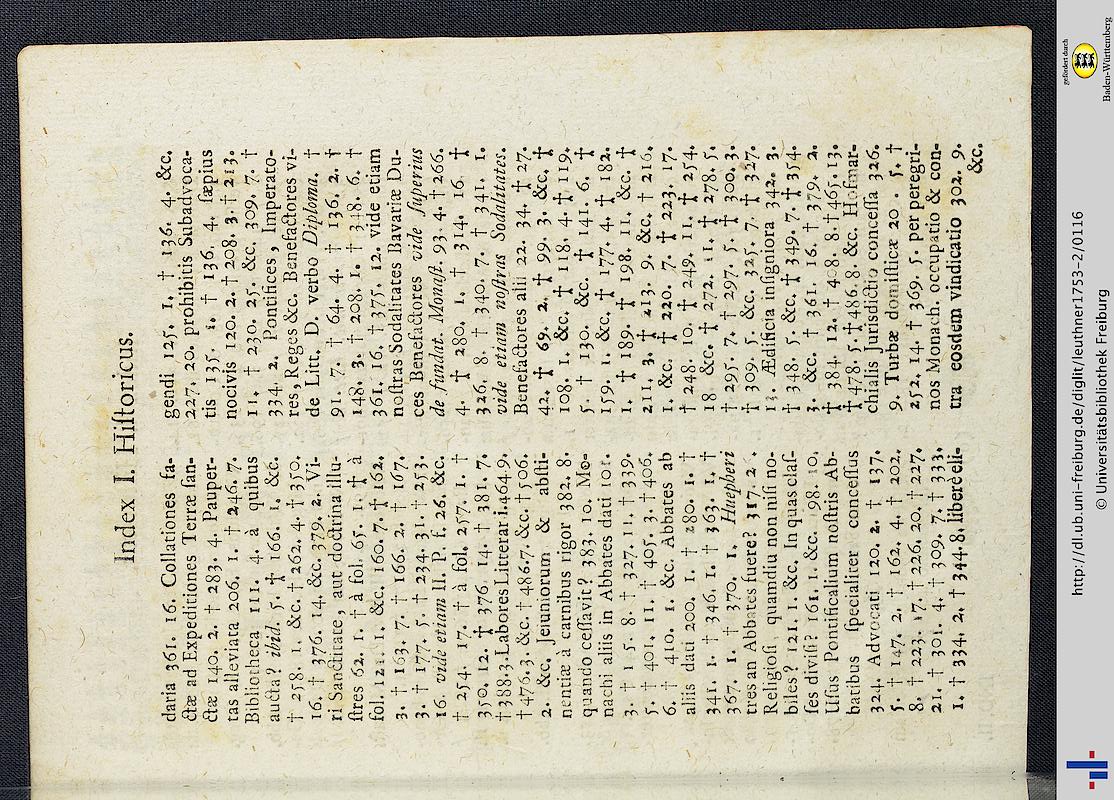 Index I. Hiſtoricus.
daria 361. 16. Collationes fa-
ctæ ad Expeditiones Terræ ſan-
ctæ 140. 2. † 283. 4. Pauper-
tas alleviata 206. 1. † 246. 7.
Bibliotheca 111. 4. à quibus
aucta? ibid. 5. † 166. 1. &c.
† 258. 1. &c. † 262. 4. † 350.
16. † 376. 14. &c. 379. 2. Vi-
ri Sanctitate, aut doctrina illu-
ſtres 62. 1. † à fol. 65. 1. † à
fol. 121. 1. &c. 160. 7. † 162.
3. † 163. 7. † 166. 2. † 167.
3. † 177. 5. † 234. 31. † 253.
16. vide etiam II. P. f. 26. &c.
† 254. 17. † à fol. 257. 1. †
350. 12. † 376. 14. † 381. 7.
† 388. 3. Labores Litterar 1. 464. 9.
† 476. 3. &c. † 486. 7. &c. † 506.
2. &c. Jejuniorum & abſti-
nentiæ à carnibus rigor 382. 8.
quando ceſſavit? 383. 10. Mo-
nachi aliis in Abbates dati 101.
3. † 1 5. 8. † 327. 11. † 339.
5. † 401. 11. † 405. 3. † 406.
6. † 410. 1. &c. Abbates ab
aliis dati 200. 1. † 280. 1. †
341. 1. † 346. 1. † 363. 1. †
367. 1. † 370. 1. Huepheri
tres an Abbates fuere? 317. 2.
Religioſi quamdiu non niſi no-
biles? 121. 1. &c. In quas claſ-
ſes diviſi? 161. 1. &c. 198. 10.
Uſus Pontificalium noſtris Ab-
batibus ſpecialiter conceſſus
324. Advocati 120. 2. † 137.
5. † 147. 2. † 162. 4. † 202.
8. † 223. 17. † 226. 20. † 227.
21. † 301. 4. † 309. 7. † 333.
1. † 334. 2. † 344. 8. liberè eli-
gendi 125. 1. † 136. 4. &c.
227. 20. prohibitis Subadvoca-
tis 135. 1. † 136. 4. ſæpius
nocivis 120. 2. † 208. 3. † 213.
11. † 230. 25. &c. 309. 7. †
334. 2. Pontifices, Imperato-
res, Reges &c. Benefactores vi-
de Litt. D. verbo Diploma. †
91. 7. † 64. 4. † 136. 2. †
148. 3. † 208. 1. † 348. 6. †
361. 16. † 375. 12. vide etiam
noſtras Sodalitates Bavariæ Du-
ces Benefactores vide ſuperius
de fundat. Monaſt. 93. 4. † 266.
4. † 280. 1. † 314. 16. †
326. 8. † 340. 7. † 341. 1.
vide etiam noſtras Sodalitates.
Benefactores alii 22. 34. † 27.
42. † 69. 2. † 99. 3. &c. †
108. 1. &c. † 118. 4. † 119.
5. † 130. &c. † 141. 6. †
159. 1. &c. † 177. 4. † 182.
1. † 189. † 198. 11. &c. †
211. 3. † 213. 9. &c. † 216.
1. &c. † 220. 7. † 223. 17.
† 248. 10. † 249. 11. † 254.
18 &c. † 272. 11. † 278. 5.
† 295. 7. † 297. 5. † 300. 3.
† 309. 5. &c. 325. 7. † 327.
11. Ædificia inſigniora 342. 3.
† 348. 5. &c. † 349. 7. † 354.
3. &c. † 361. 16. † 379. 2.
† 384. 12. † 408. 8. † 465. 13.
† 478. 5. † 486. 8. &c. Hofmar-
chialis Jurisdictio conceſſa 326.
9. Turbæ domiſticæ 20 . 5. †
252. 14. † 369. 5. per peregri-
nos Monach. occupatio & con-
tra eosdem vindicatio 302. 9.
&c.
gefördert durch
Baden-Württemberg
http://dl.ub.uni-freiburg.de/diglit/leuthner1753-2/0116
© Universitätsbibliothek Freiburg